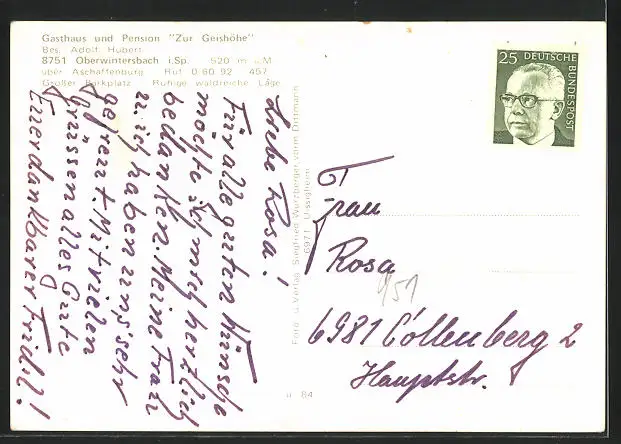 Gasthaus und Pension "Zur Geishöhe"
Bes. Adolf Hubert
8751 Oberwintersbach i.Sp. 520 m ü.M
über Aschaffenburg Ruf 0 60 92 457
Großer Parkplatz Ruhige waldreiche Lage
Liebe Rosa!
Für alle guten Wünsche
möchte ich mich herzlich
bedanken. Meine Frau
u. ich haben uns sehr
gefreut. Mit vielen
Grüssen alles Gute
Euer dankbarer Fridil!
Foto u. Verlag Siegfried Würzberger, vorm. Dittmann
6971 Uissigheim
u 84
25 DEUTSCHE
BUNDESPOST
Frau
Rosa
9/51
6981 Collenberg 2
Hauptstr.